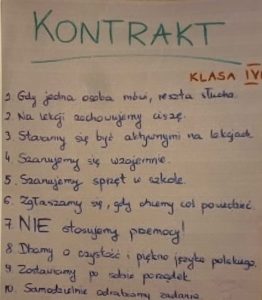 KONTRAKT
KLASA IV
1. Gdy jedna osoba mówi, reszta słucha.
2. Na lekcji zachowujemy ciszę.
3. Staramy się być aktywnymi na lekcjach.
4. Szanujemy się wzajemnie.
5. Szanujemy sprzęt w szkole.
6. Zgłaszamy się, gdy chcemy coś powiedzieć.
7. NIE stosujemy przemocy!
8. Dbamy o czystość i piękno języka polskiego.
9. Zostawiamy po sobie porządek.
10. Samodzielnie odrabiamy zadania